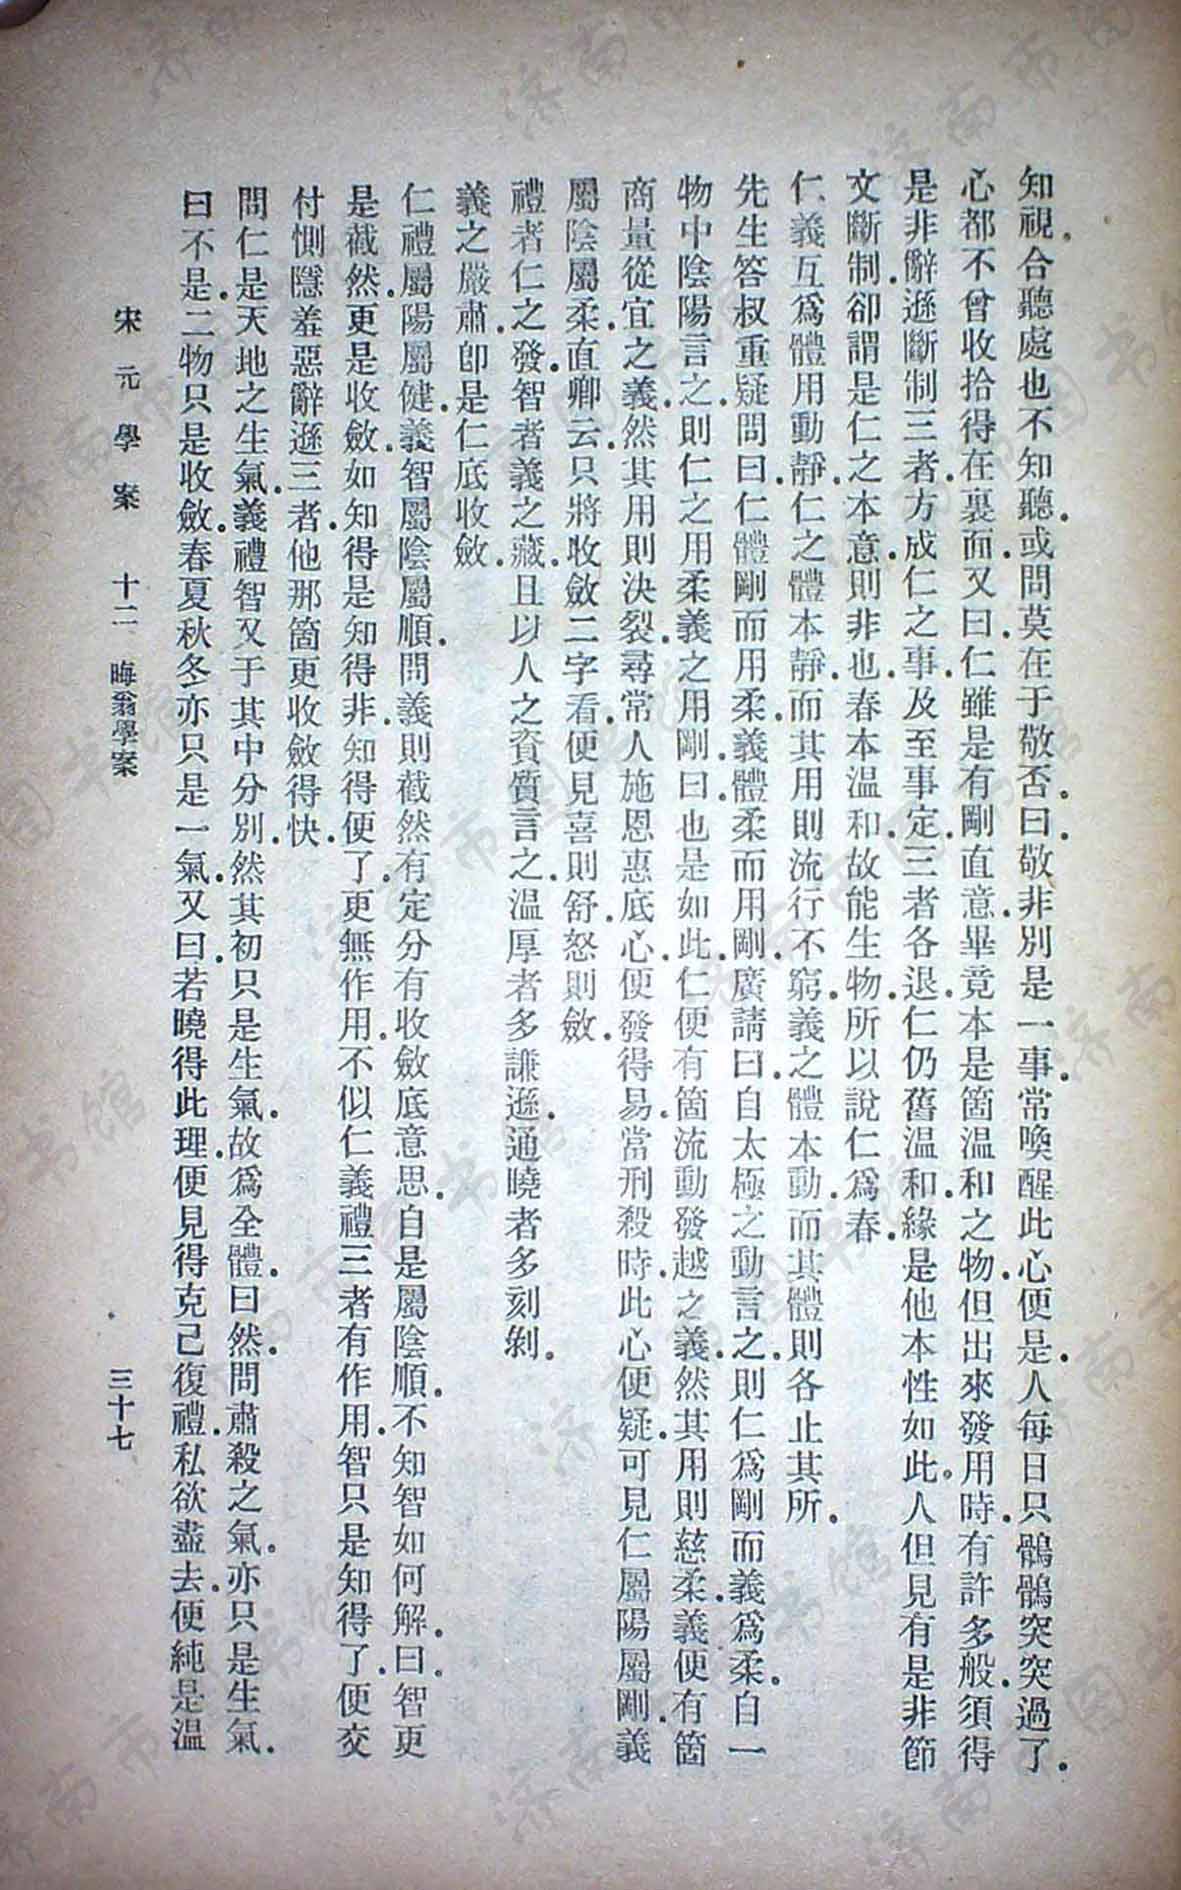 知視合聽處也不知聽或問莫在于敬否曰敬非別是一事常喚醒此心便是人每日只鶻鶻突突過了
心都不曾收拾得在裏面又曰仁雖是有剛直意畢竟本是箇溫和之物但出來發用時有許多般須得
是非辭遜斷制三者方成仁之事及至事定三者各退仁仍舊溫和緣是他本性如此人但見有是非節
文斷制卻謂是仁之本意則非也春本溫和故能生物所以說仁爲春
仁義互爲體用動靜仁之體本靜而其用則流行不窮義之體本動而其體則各止其所
先生答叔重疑問曰仁體剛而用柔義體柔而用剛廣請曰自太極之動言之則仁爲剛而義爲柔自一
物中陰陽言之則仁之用柔義之用剛曰也是如此仁便有箇流動發越之義然其用則慈柔義便有箇
商量從宜之義然其用則決裂尋常人施恩惠底心便發得易當刑殺時此心便疑可見仁屬陽屬剛義
屬陰屬柔直卿云只將收斂二字看便見喜則舒怒則斂
禮者仁之發智者義之藏且以人之資質言之溫厚者多謙遜通曉者多刻剝
義之嚴肅卽是仁底收斂
仁禮屬陽屬健義智屬陰屬順問義則截然有定分有收斂底意思自是屬陰順不知智如何解曰智更
是截然更是收斂如知得是知得非知得便了更無作用不似仁義禮三者有作用智只是知得了便交
付惻隱羞惡辭遜三者他那箇更收斂得快
問仁是天地之生氣義禮智又于其中分別然其初只是生氣故爲全體曰然問肅殺之氣亦只是生氣
曰不是二物只是收斂春夏秋冬亦只是一氣又曰若曉得此理便見得克己復禮私欲盡去便純是溫
宋元學案 十二 晦翁學案 三十七
济南市图书馆